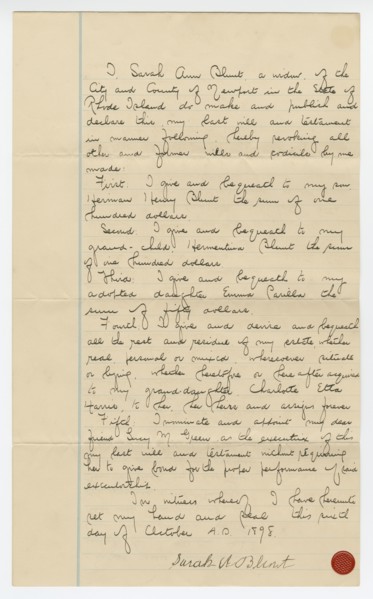 I, Sarah Ann Blunt a widow, of the
City and County of Newport in the State of
Rhode Island do make and publish and
declare this my last will and testament
in manner following hereby revoking all
other and former wills and codicils by me
made:
First: I give and bequeath to my son
Herman Henry Blunt the sum of one
hundred dollars
Second: I give and bequeath to my
grand-child Hermentina Blunt the sum
of one hundred dollars
Third: I give and bequeath to my
adopted daughter Emma Parilla the
sum of fifty dollars.
Fourth I give and devise and bequeath
all the rest and residue of my estate whether
real, personal or mixed wheresoever situate
or lying, whether heretofore or here after acquired
to my granddaughter Charlotte Etta
Harris, to her, her heirs and assigns forever
Fifth I nominate and appoint my dear
friend M Green as the executrix of this
my last will and testament without requiring
her to give bond for the proper performance of said
executorship.
In witness whereof I have hereunto
set my hand and seal this sixth
day of October A.D. 1898.
Sarah A Blunt